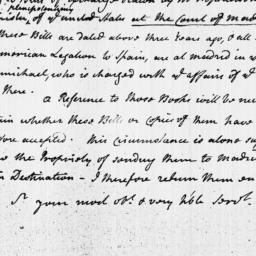 plenipotentiary
nister, of ye united States at the Court of mad
these Bills are dated above three Years ago, & all
merican Legation to Spain, are at madrid in ye
michael, who is charged with ye affairs of ye
there.
a Reference to those Books will be ne
ain whether these Bills or Copies of them have
fore accepted. this Circumstance is alone su
w the Propriety of sending them to Madrid
ir Destination - I therefore return them en
Sr your most obt & very hble Servt.